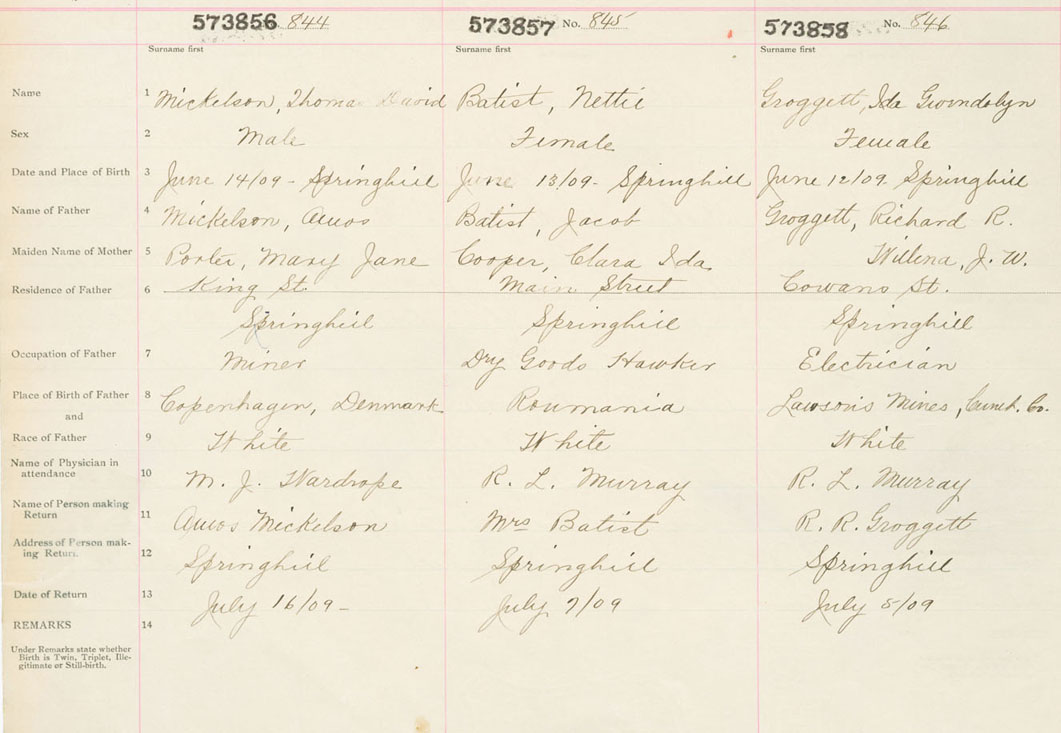 573856 844 573857 No. 845 573858 No. 846
Surname first Surname first Surname first
Name 1 Mickelson, Thomas David Batist, Nettie Groggett, Ida Gwindolyn
Sex 2 Male Female Female
Date and Place of Birth 3 June 14/09 - Springhill June 13/09 - Springhill June 12/09. Springhill
Name of Father 4 Mickelson, Amos Batist, Jacob Groggett, Richard R.
Maiden Name of Mother 5 Porter, Mary Jane Cooper, Clara Ida Wilena, J. W.
Residence of Father 6 King St. Main Street Cowans St.
Springhill Springhill Springhill
Occupation of Father 7 Miner Dry Goods Hawker Electrician
Place of Birth of Father 8 Copenhagen, Denmark Roumania Lawson's Mines, Cumb. Co.
and
Race of Father 9 White White White
Name of Physician in
attendance 10 M. J. Wardrope R. L. Murray R. L. Murray
Name of Person making
Return 11 Amos Mickelson Mrs Batist R. R. Groggett
Address of Person mak-
ing Return. 12 Springhill Springhill Springhill
Date of Return 13 July 16/09 - July 7/09 July 5/09
REMARKS 14
Under Remarks state whether
Birth is Twin, Triplet, Ille-
gitimate or Still-birth.